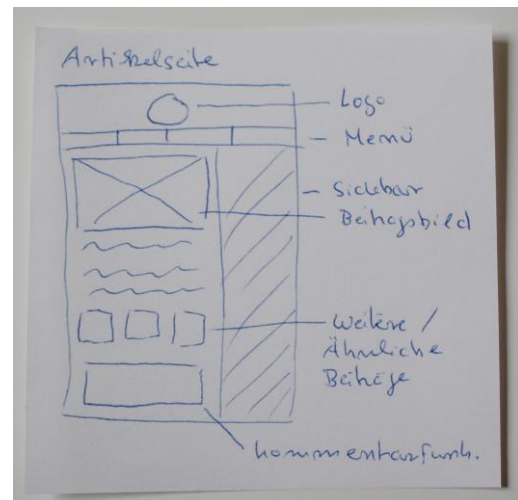 Artikelseite
Logo
Menü
Sidebar
Beitragsbild
Weitere /
Ähnliche
Beiträge
Kommentarfunk.